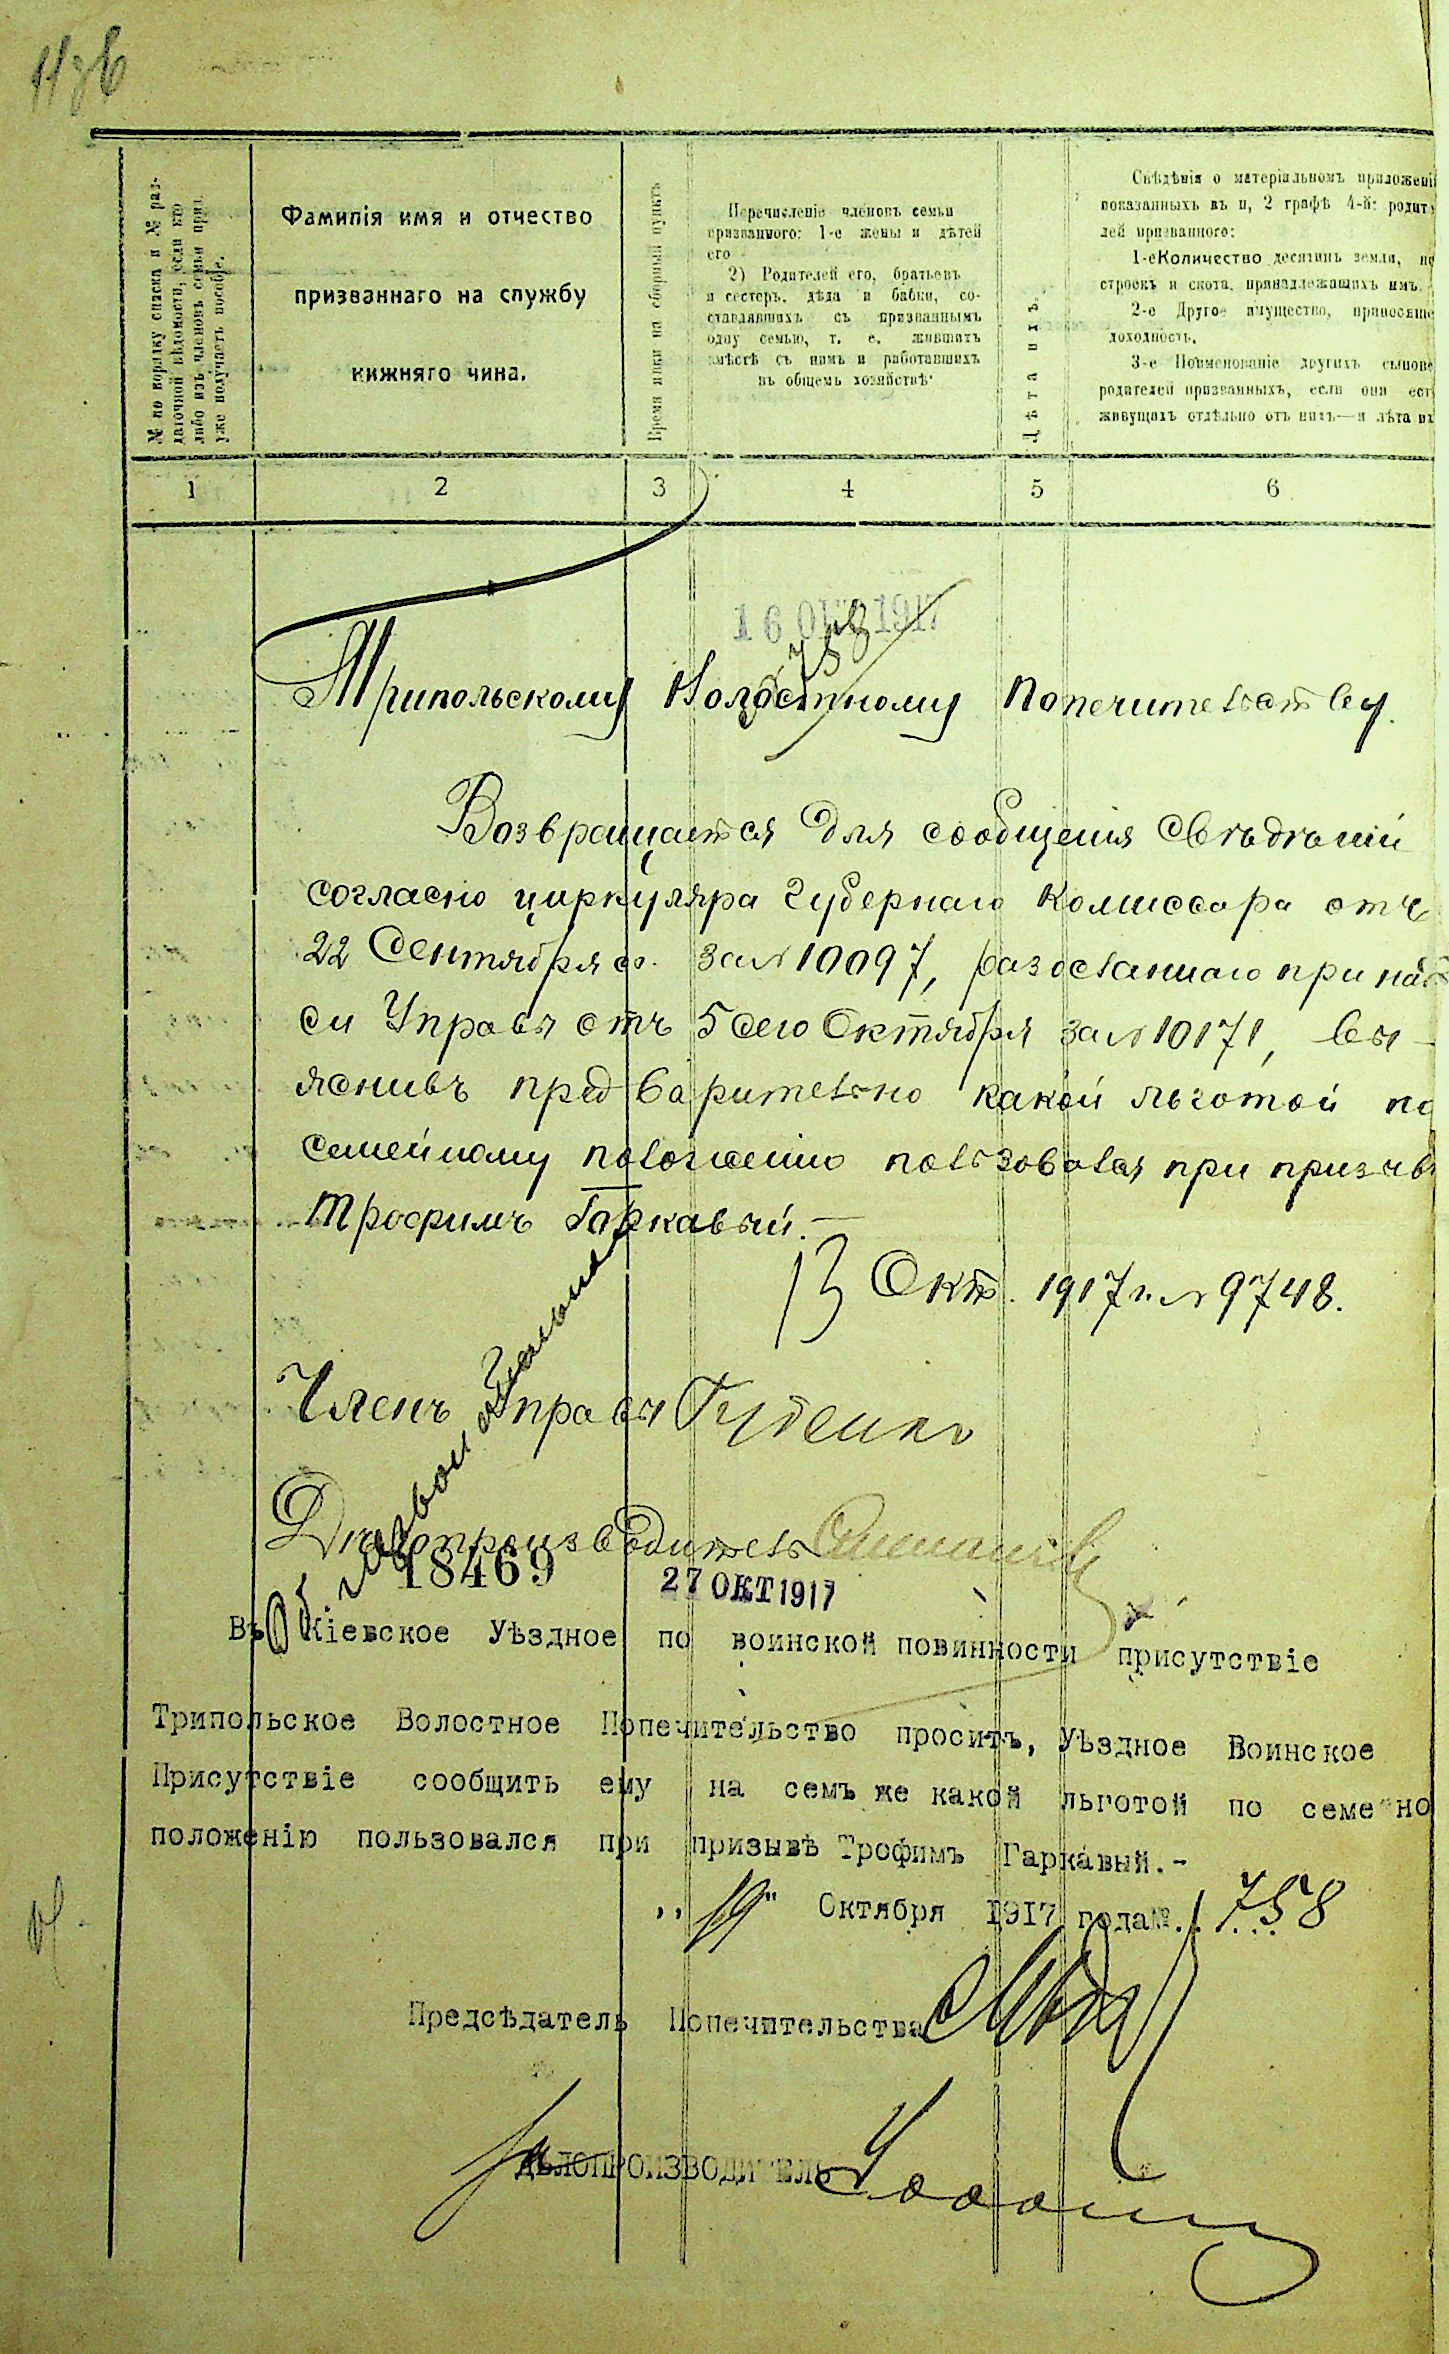 № по порядку списка и № раз-
даточной вѣдомости, если кто
либо изъ членовъ семьи приз.
уже получаетъ пособіе.
Фамилія имя и отчество
призваннаго на службу
нижняго чина.
Время явки на сборный пунктъ
Перечисленіе членовъ семьи
призваннаго: 1-е жены и дѣтей
его
2) Родителей его, братьевъ
и сестеръ, дѣда и бабки, со-
ставлявшихъ съ призваннымъ
одну семью, т. е. жившихъ
вмѣстѣ съ нимъ и работавшихъ
въ общемъ хозяйствѣ
Лѣта ихъ.
Свѣдѣнія о матеріальномъ приложеніи
показанныхъ въ п, 2 графѣ 4-й: родите
лей призваннаго:
1-е Количество десятинъ земли, по
строекъ и скота, принадлежащихъ имъ.
2-е Другое имущество, приносяще
доходность.
3-е Поименованіе другихъ сынове
родителей призванныхъ, если они ест
живущихъ отдѣльно отъ нихъ—и лѣта их
1 2 3 4 5 6
16 ОКТ 1917
758
Трипольскому Волостному Попечительству.
Возвращается для сообщенія свѣдѣній
согласно циркуляра Губернаго Комиссара отъ
22 Сентября с. за № 10097, разосланнаго при надпи
си Управы отъ 5 сего Октября за № 10171, вы-
яснивъ предварительно какой льготой по
семейному положенію пользовался при призывѣ
Трофимъ Гаркавый.—
13 Окт. 1917 г. № 9748.
Членъ Управы Гуденко
Дѣлопроизводитель
18469
27 ОКТ 1917
Въ Кіевское Уѣздное по воинской повинности присутствіе
Трипольское Волостное Попечительство проситъ, Уѣздное Воинское
Присутствіе сообщить ему на семъ же какой льготой по семейно
положенію пользовался при призывѣ Трофимъ Гаркавый.-
„19" Октября 1917 года № 758
Предсѣдатель Попечительства
ДѢЛОПРОИЗВОДИТЕЛЬ